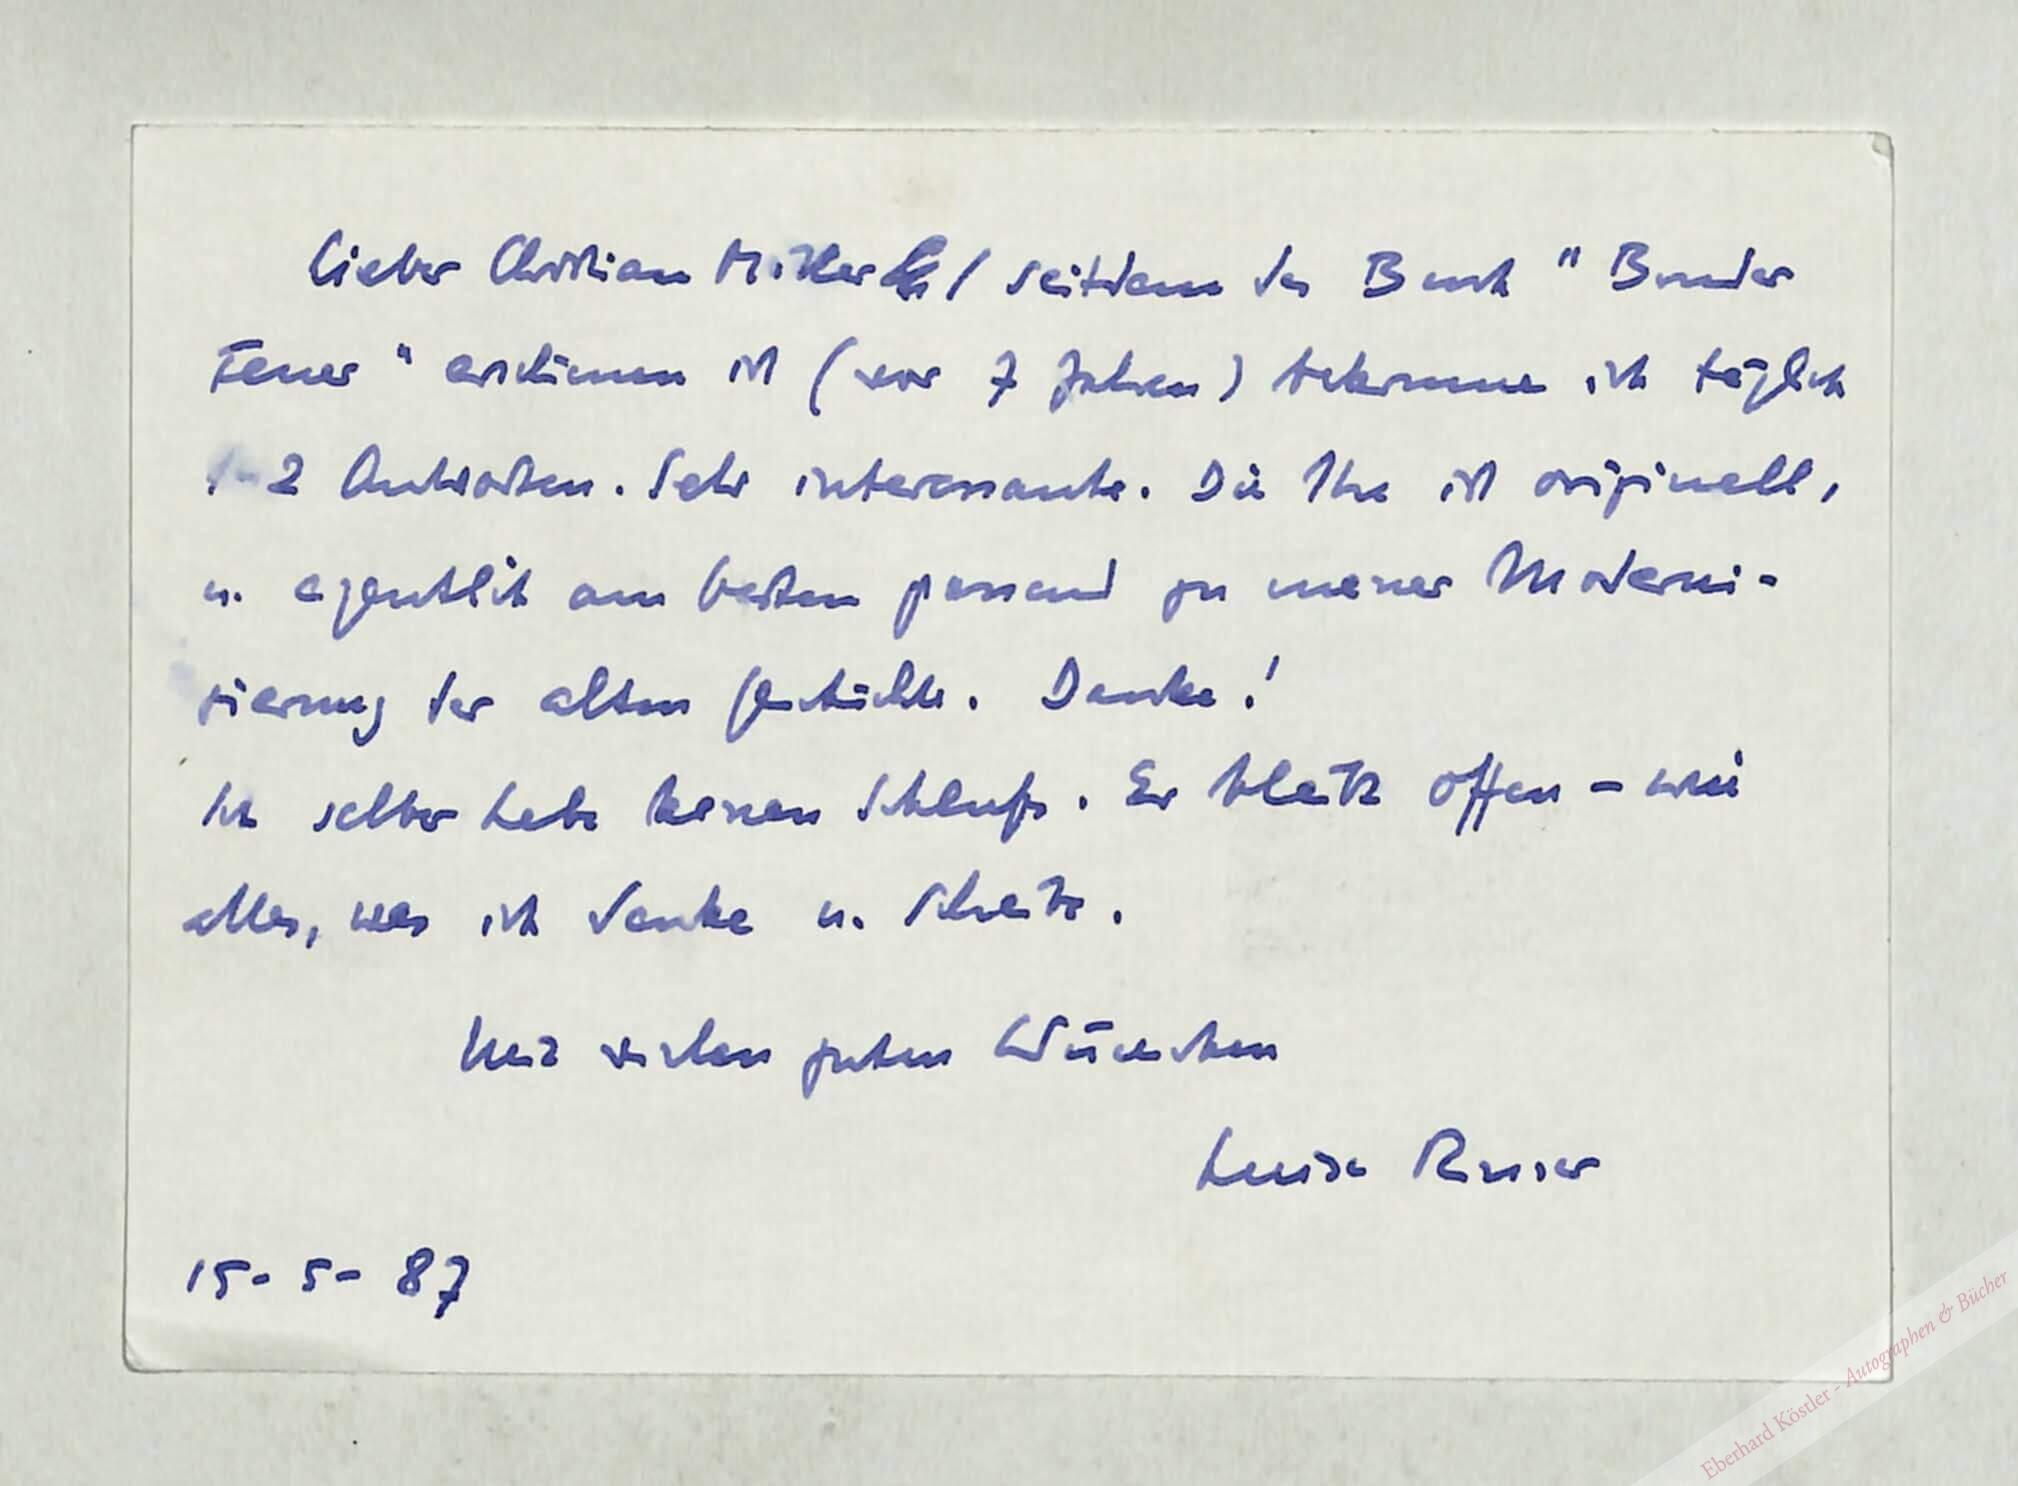 Lieber Christian / seitdem das Buch "Bruder
Feuer" erschienen ist (vor 7 Jahren) bekomme ich täglich
1-2 Antworten. Sehr interessante. Die Ihre ist originell,
u. eigentlich am besten passend zu meiner Moderni-
sierung der alten Geschichte. Danke!
Ich selber habe keinen Schluß. Er bleibt offen – wie
alles, was ich denke u. schreibe.
Mit vielen guten Wünschen
Luise Rinser
15-5-87
Eberhard Köstler - Autographen & Bücher